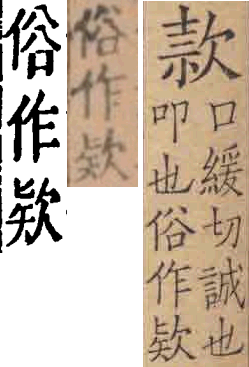 款
口緩切誠也
叩也俗作欵
俗作欵
俗作欵